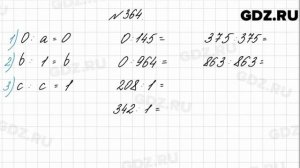 GDZ.RU
№ 364
1) 0 : a = 0
2) b : 1 = b
3) c : c = 1
0 : 145 =
0 : 964 =
208 : 1 =
342 : 1 =
375 : 375 =
863 : 863 =
GDZ.RU